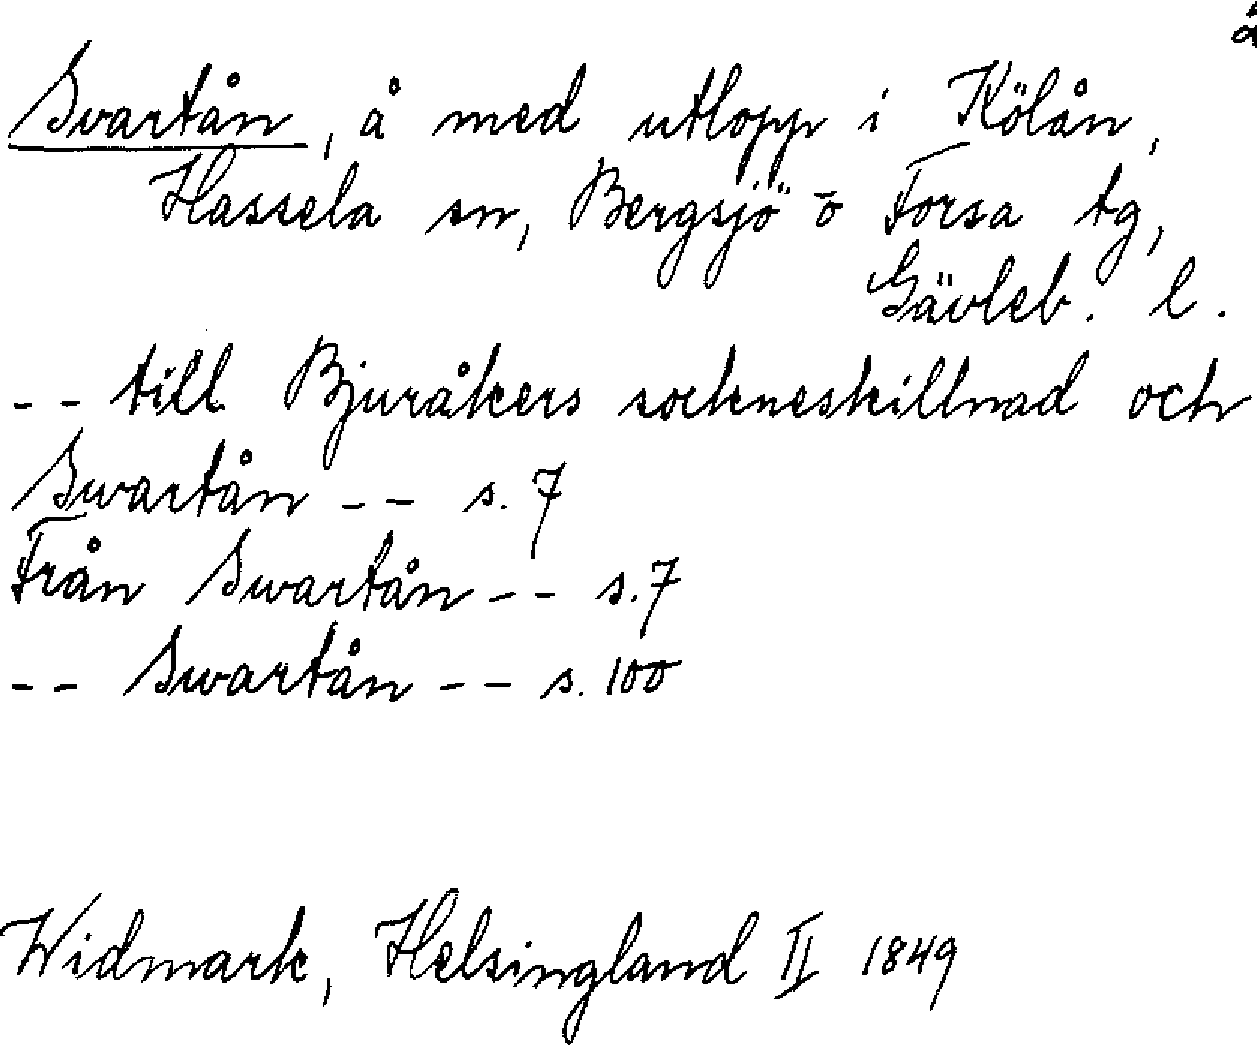 å
Svartån, å med utlopp i Kölån,
Hassela sn, Bergsjö o Forsa tg,
Gävleb. l.
-- till Bjuråkers sockneskillnad och
Swartån -- s. 7
Från Swartån -- s. 7
-- Swartån -- s. 100
Widmark, Helsingland II 1849